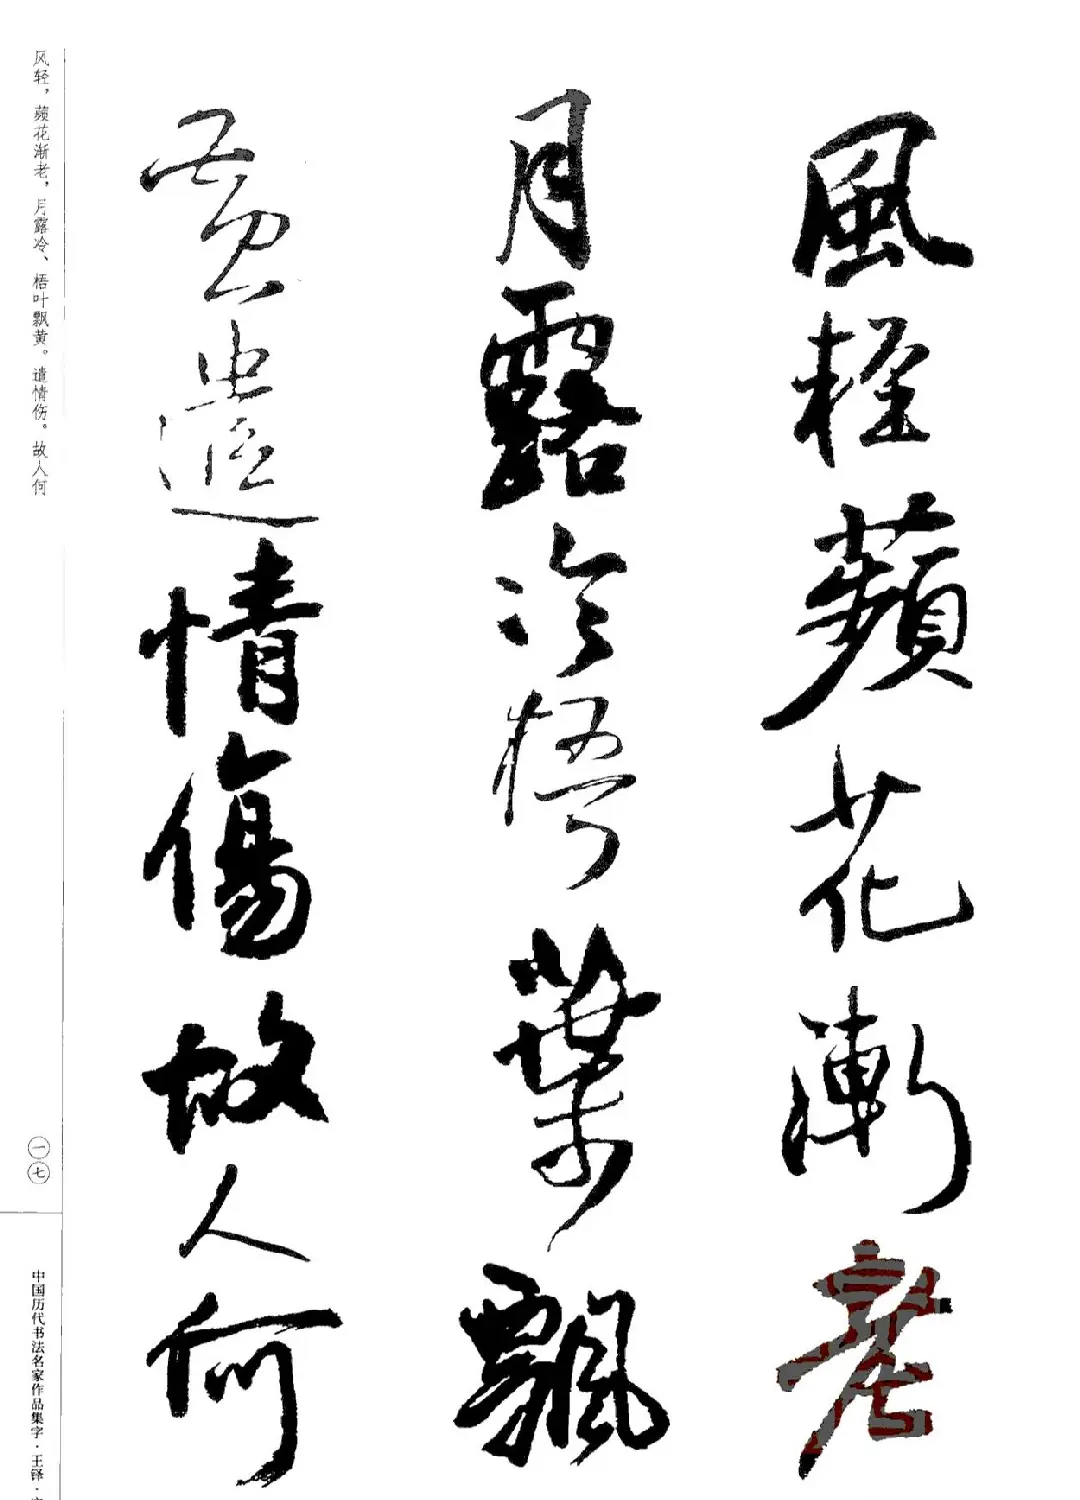 風輕蘋花漸老
月露冷梧葉飄
黄遣情傷故人何
风轻，蘋花渐老，月露冷、梧叶飘黄。遣情伤。故人何
一七
中国历代书法名家作品集字·王铎·